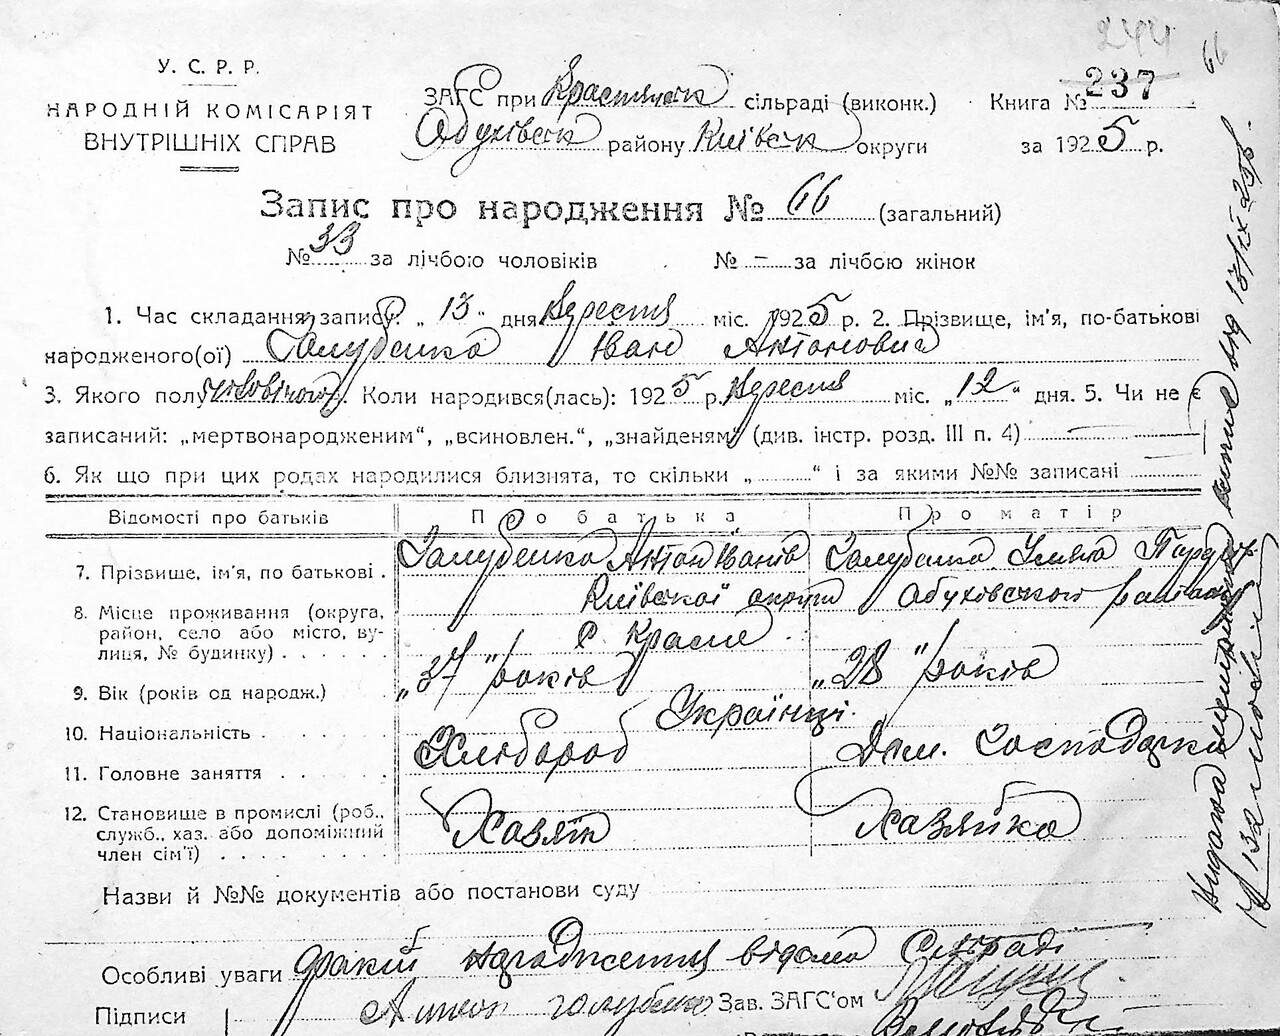 244
66
У. С. Р. Р.
НАРОДНІЙ КОМІСАРІЯТ
ВНУТРІШНІХ СПРАВ
ЗАГС при Краснянск сільраді (виконк.) Книга № 237
Обухівск району Київск округи за 1925 р.
Запис про народження № 66 (загальний)
№ 33 за лічбою чоловіків № – за лічбою жінок
1. Час складання запису: „ 13 " дня Вересня міс. 1925 р. 2. Прізвище, ім'я, по-батькові
народженого(ої) Голубенко Іван Антонович
3. Якого полу чоловічого. Коли народився(лась): 1925 р. Вересня міс. „ 12 " дня. 5. Чи не є
записаний: „мертвонародженим", „всиновлен.", „знайденям" (див. інстр. розд. III п. 4)
6. Як що при цих родах народилися близнята, то скільки „ " і за якими №№ записані
Відомості про батьків Про батька Про матір
7. Прізвище, ім'я, по батькові . Голубенко Антон Іванів Голубенко
8. Місце проживання (округа, район, село або місто, вулиця, № будинку) . . . . . Київської округи Обухівського району
с. Красне
9. Вік (років од народж.) „37" років „28" років
10. Національність . . . . . Українці.
11. Головне заняття . . . . . Хлібороб Дом. Господарка
12. Становище в промислі (роб.,
служб., хаз. або допоміжний
член сім'ї) . . . . . . . . Хазяїн Хазяйка
Назви й №№ документів або постанови суду
Особливі уваги факт народження відомо Сільраді
Підписи Антон Голубенко Зав. ЗАГС'ом
Видана